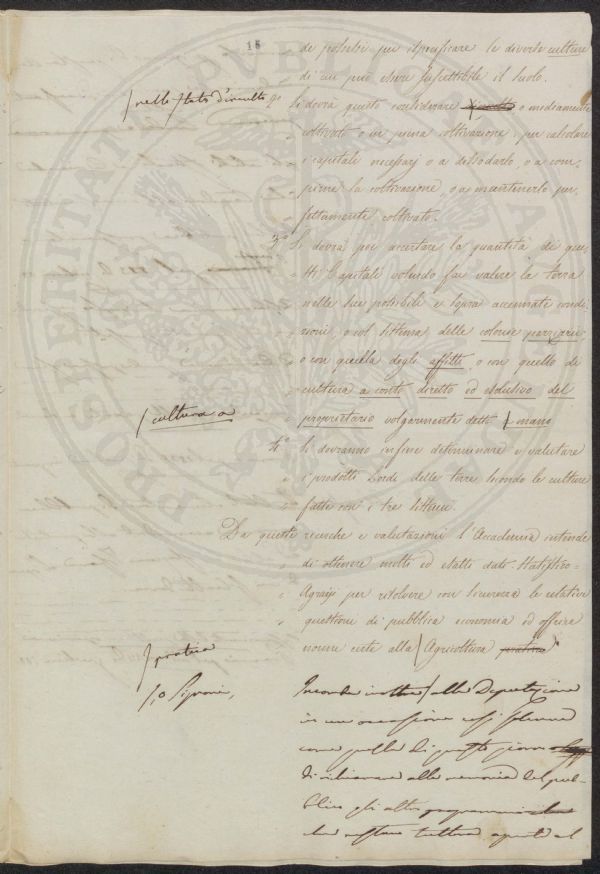 15
de possibi per specificare le diverse culture
di cui può essere suscettibile il suolo.
/ nello stato d'incolto, 2º Si dovrà questo considerare o mediamente
coltivato o in piena coltivazione, per calcolare
i capitali necessarj o a dissodarlo, o a com-
pirne la coltivazione, o a mantenerlo per-
fettamente coltivato.
3º Si dovrà poi accertare la quantità di que-
sti Capitali volendo far valere la terra
nelle sue possibili e sopra accennate condi-
zioni, o col sistema delle colonie parziarie
o con quella degli affitti, o con quello di
cultura a conto diretto ed esclusivo del
/ cultura a proprietario volgarmente detti / mano
4º Si dovranno infine determinare e valutare
i prodotti lordi delle terre secondo le culture
fatte coi i tre sistemi.
Da queste ricerche e valutazioni l'Accademia intende
di ottenere molti ed esatti dati Statistico=
Agrarj per risolvere con sicurezza le relative
questioni di pubblica economia ed offrire
norme certe alla / Agricoltura pratica
/ pratica
/ o Signori, Incombe inoltre / alla Deputazione
in un'occasione così solenne
come quella di questo giorno
di richiamare alla memoria del pub-
blico gli altri programmi
che restano tuttora aperti al